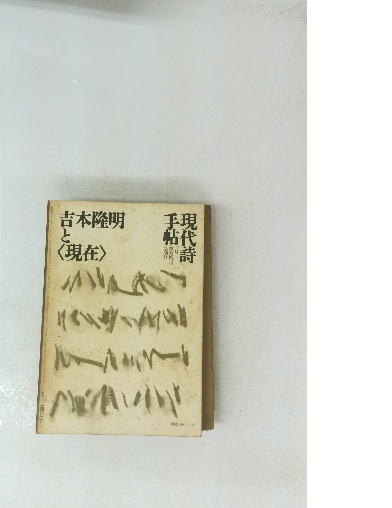 現代詩
手帖
吉本隆明
と
〈現在〉